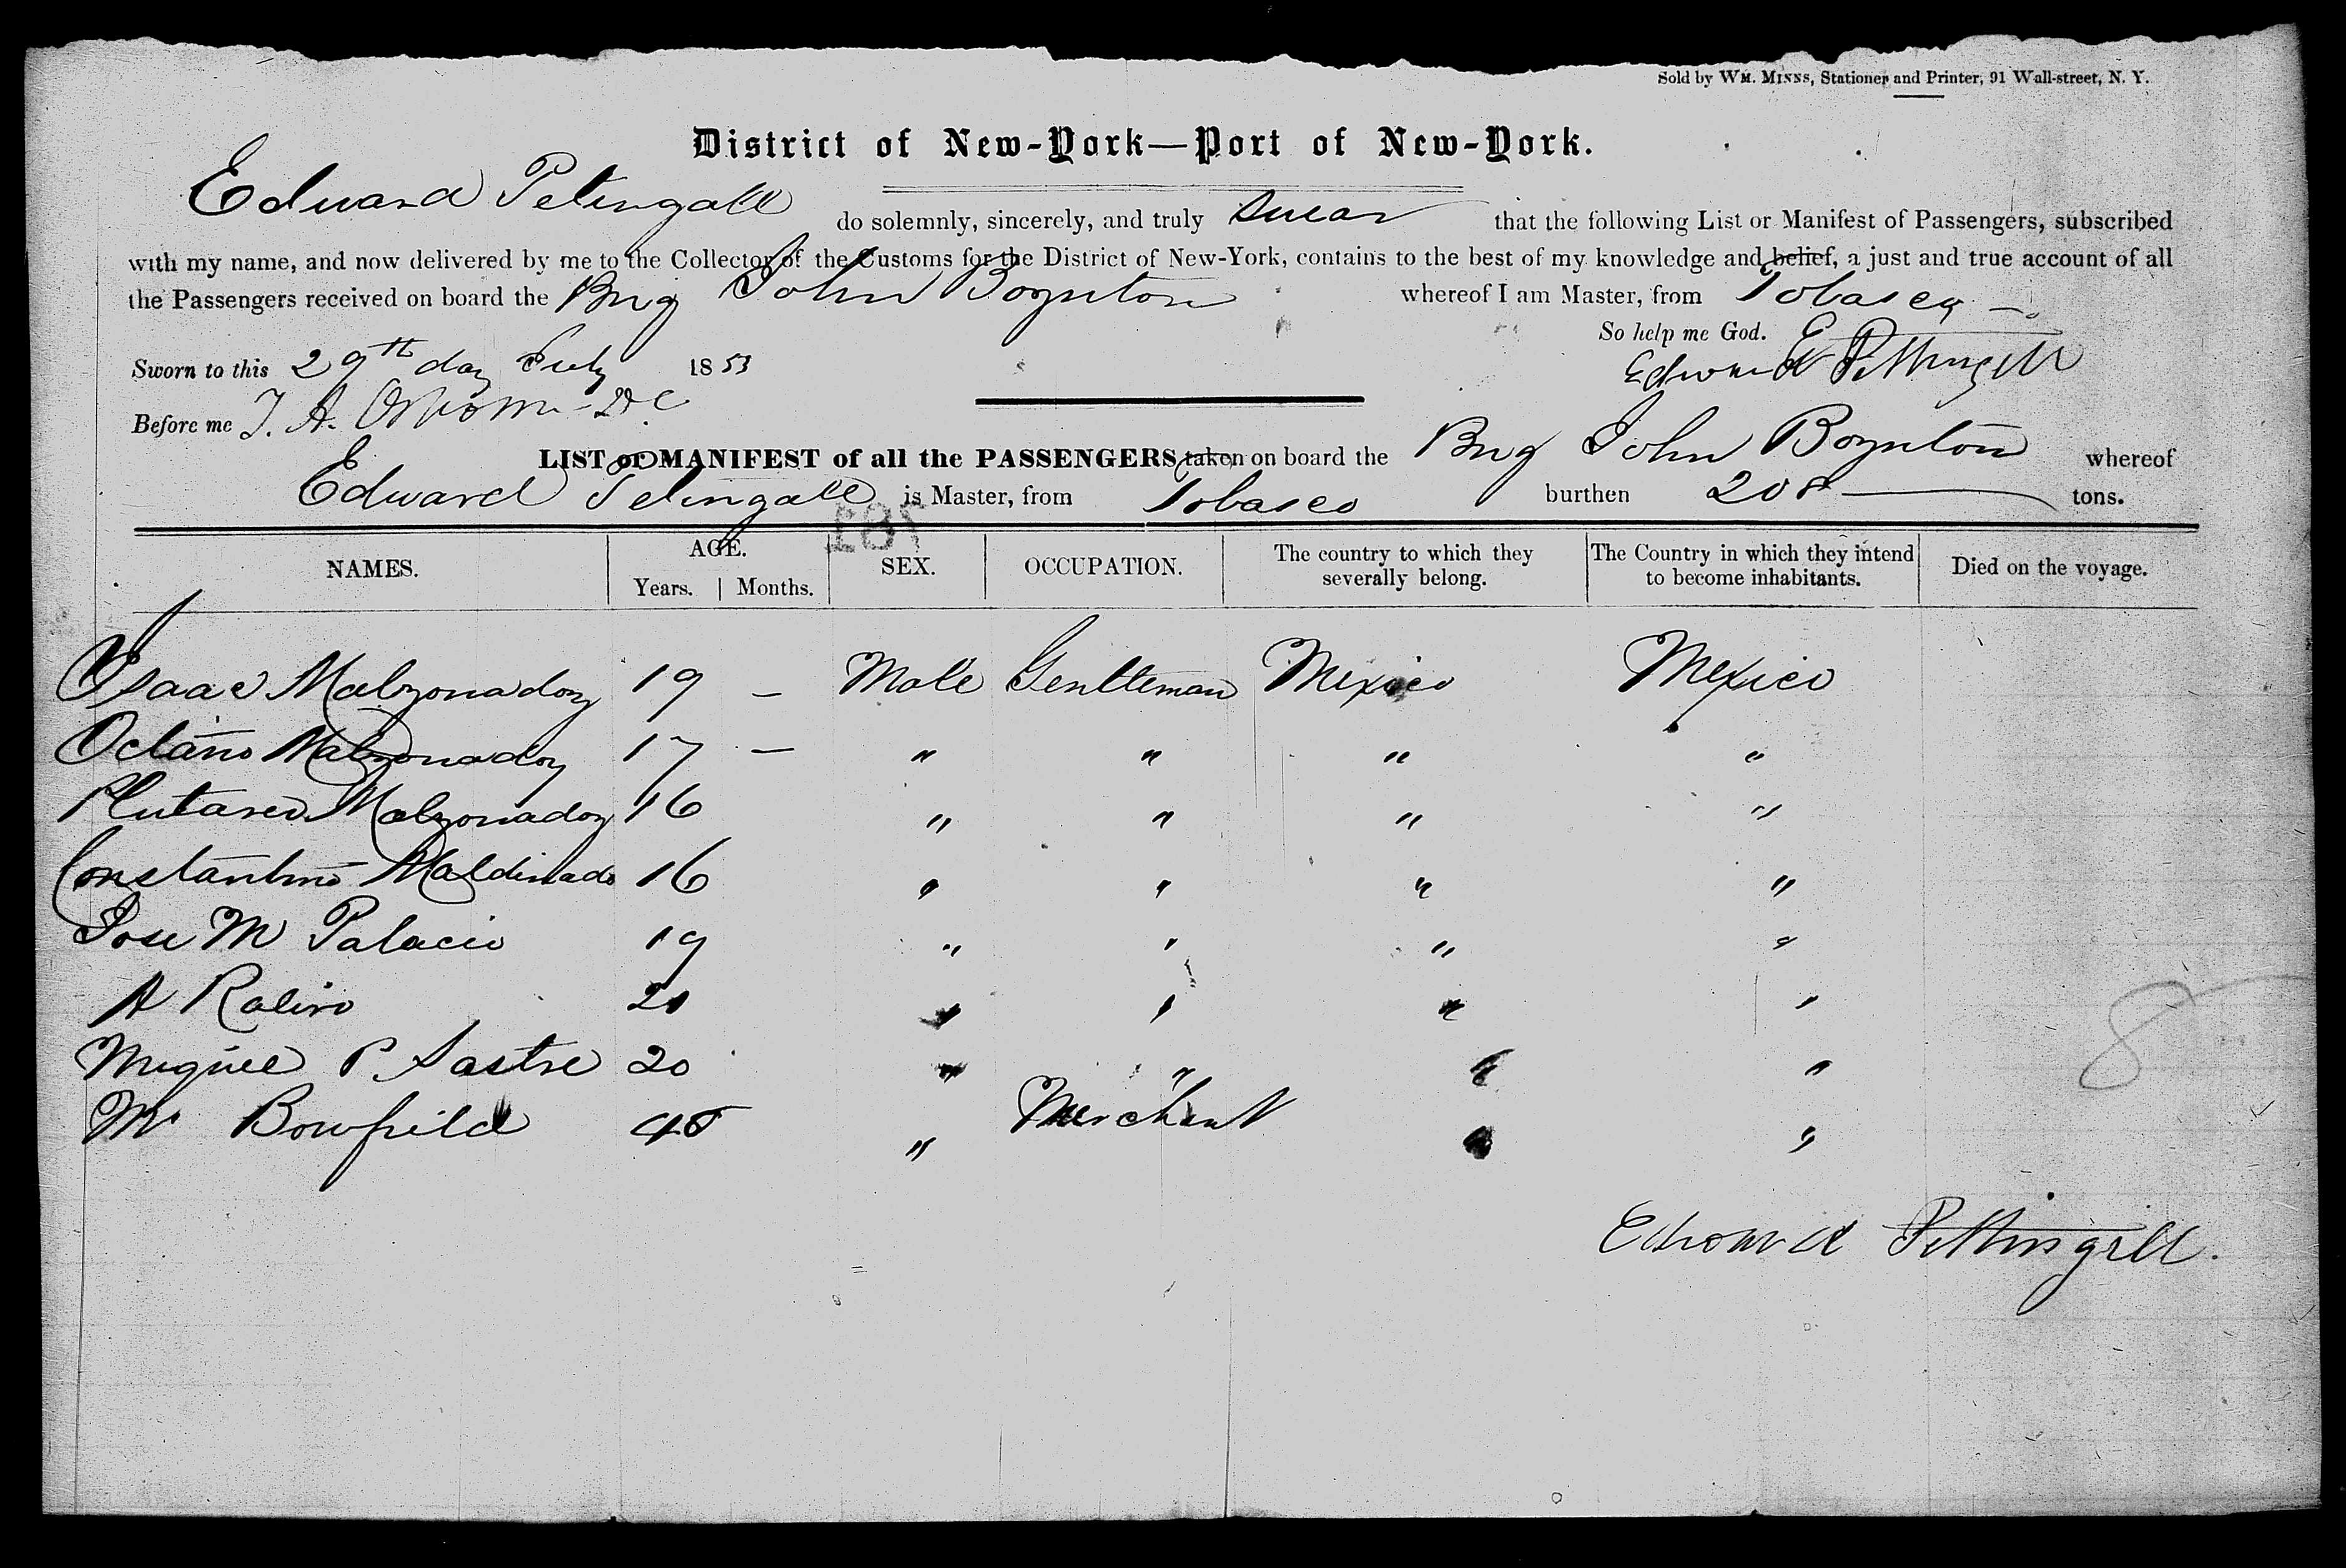 Sold by WM. MINNS, Stationer and Printer, 91 Wall-street, N. Y.
District of New-York—Port of New-York.
Edward Petingall do solemnly, sincerely, and truly swear that the following List or Manifest of Passengers, subscribed
with my name, and now delivered by me to the Collector of the Customs for the District of New-York, contains to the best of my knowledge and belief, a just and true account of all
the Passengers received on board the Brig John Boynton whereof I am Master, from Tobasco
So help me God.
Sworn to this 29th day July 1853 Edward Pettingill
Before me
LIST or MANIFEST of all the PASSENGERS taken on board the Brig John Boynton whereof
Edward Petingall is Master, from Tobasco burthen 208 tons.
NAMES. AGE. Years. | Months. SEX. OCCUPATION. The country to which they severally belong. The Country in which they intend to become inhabitants. Died on the voyage.
Isaac Malzonadoy 19 — Male Gentleman Mexico Mexico
Octano Malzonadoy 17 — " " " "
Plutarco Malzonadoy 16 " " " "
Constantino Maldinado 16 " " " "
Jose M Palacio 19 " " " "
A 21 " " " "
Miguel P Sastre 20 " " " "
Mr Bowfild 45 " Merchant " "
8
Edward Pettingill.